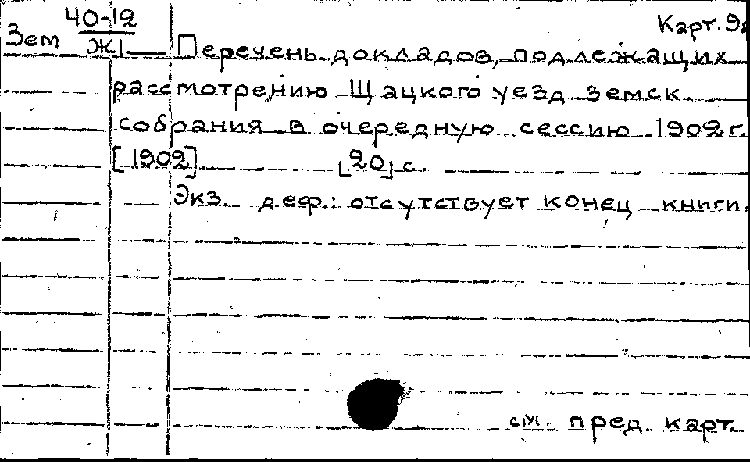 40-12
Зем Ж1 Карт. 9
Перечень докладов, подлежащих
рассмотрению Шацкого уезд. земск.
собрания в очередную сессию 1902 г.
[1902] [20] с.
Экз. деф.: отсутствует конец книги.
см. пред. карт.